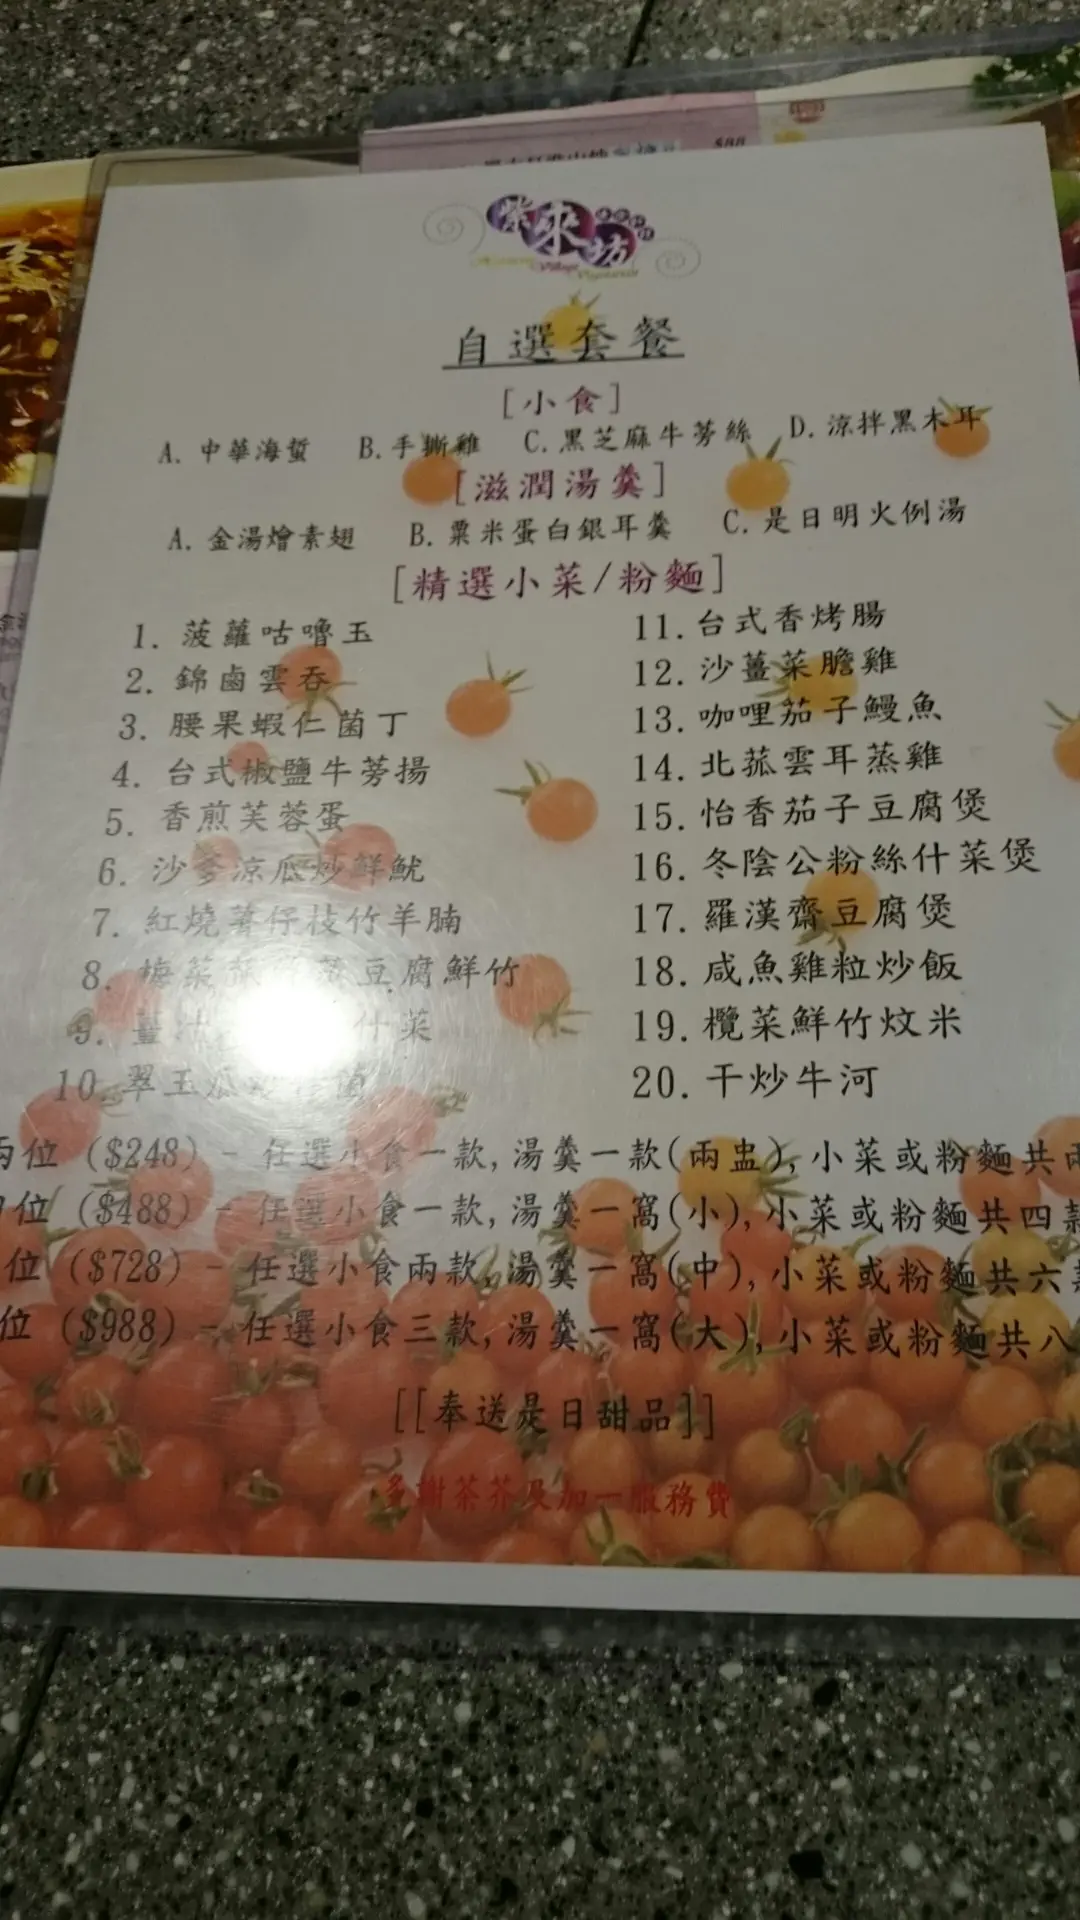 $88
紫來坊
Village
自選套餐
[小食]
A. 中華海蜇 B. 手撕雞 C. 黑芝麻牛蒡絲 D. 涼拌黑木耳
[滋潤湯羹]
A. 金湯燴素翅 B. 粟米蛋白銀耳羹 C. 是日明火例湯
[精選小菜/粉麵]
1. 菠蘿咕嚕玉
2. 錦鹵雲吞
3. 腰果蝦仁菌丁
4. 台式椒鹽牛蒡揚
5. 香煎芙蓉蛋
6. 沙爹涼瓜炒鮮魷
7. 紅燒薯仔枝竹羊腩
8. 梅菜 豆腐鮮竹
9. 薑汁 什菜
10. 翠玉瓜
11. 台式香烤腸
12. 沙薑菜膽雞
13. 咖哩茄子鰻魚
14. 北菰雲耳蒸雞
15. 怡香茄子豆腐煲
16. 冬陰公粉絲什菜煲
17. 羅漢齋豆腐煲
18. 咸魚雞粒炒飯
19. 欖菜鮮竹炆米
20. 干炒牛河
兩位 ($248) - 任選小食一款, 湯羹一款(兩盅), 小菜或粉麵共
位 ($488) - 任選小食一款, 湯羹一窩(小), 小菜或粉麵共四款
位 ($728) - 任選小食兩款, 湯羹一窩(中), 小菜或粉麵共六
位 ($988) - 任選小食三款, 湯羹一窩(大), 小菜或粉麵共八
[[奉送是日甜品]]
多謝茶芥及加一服務費